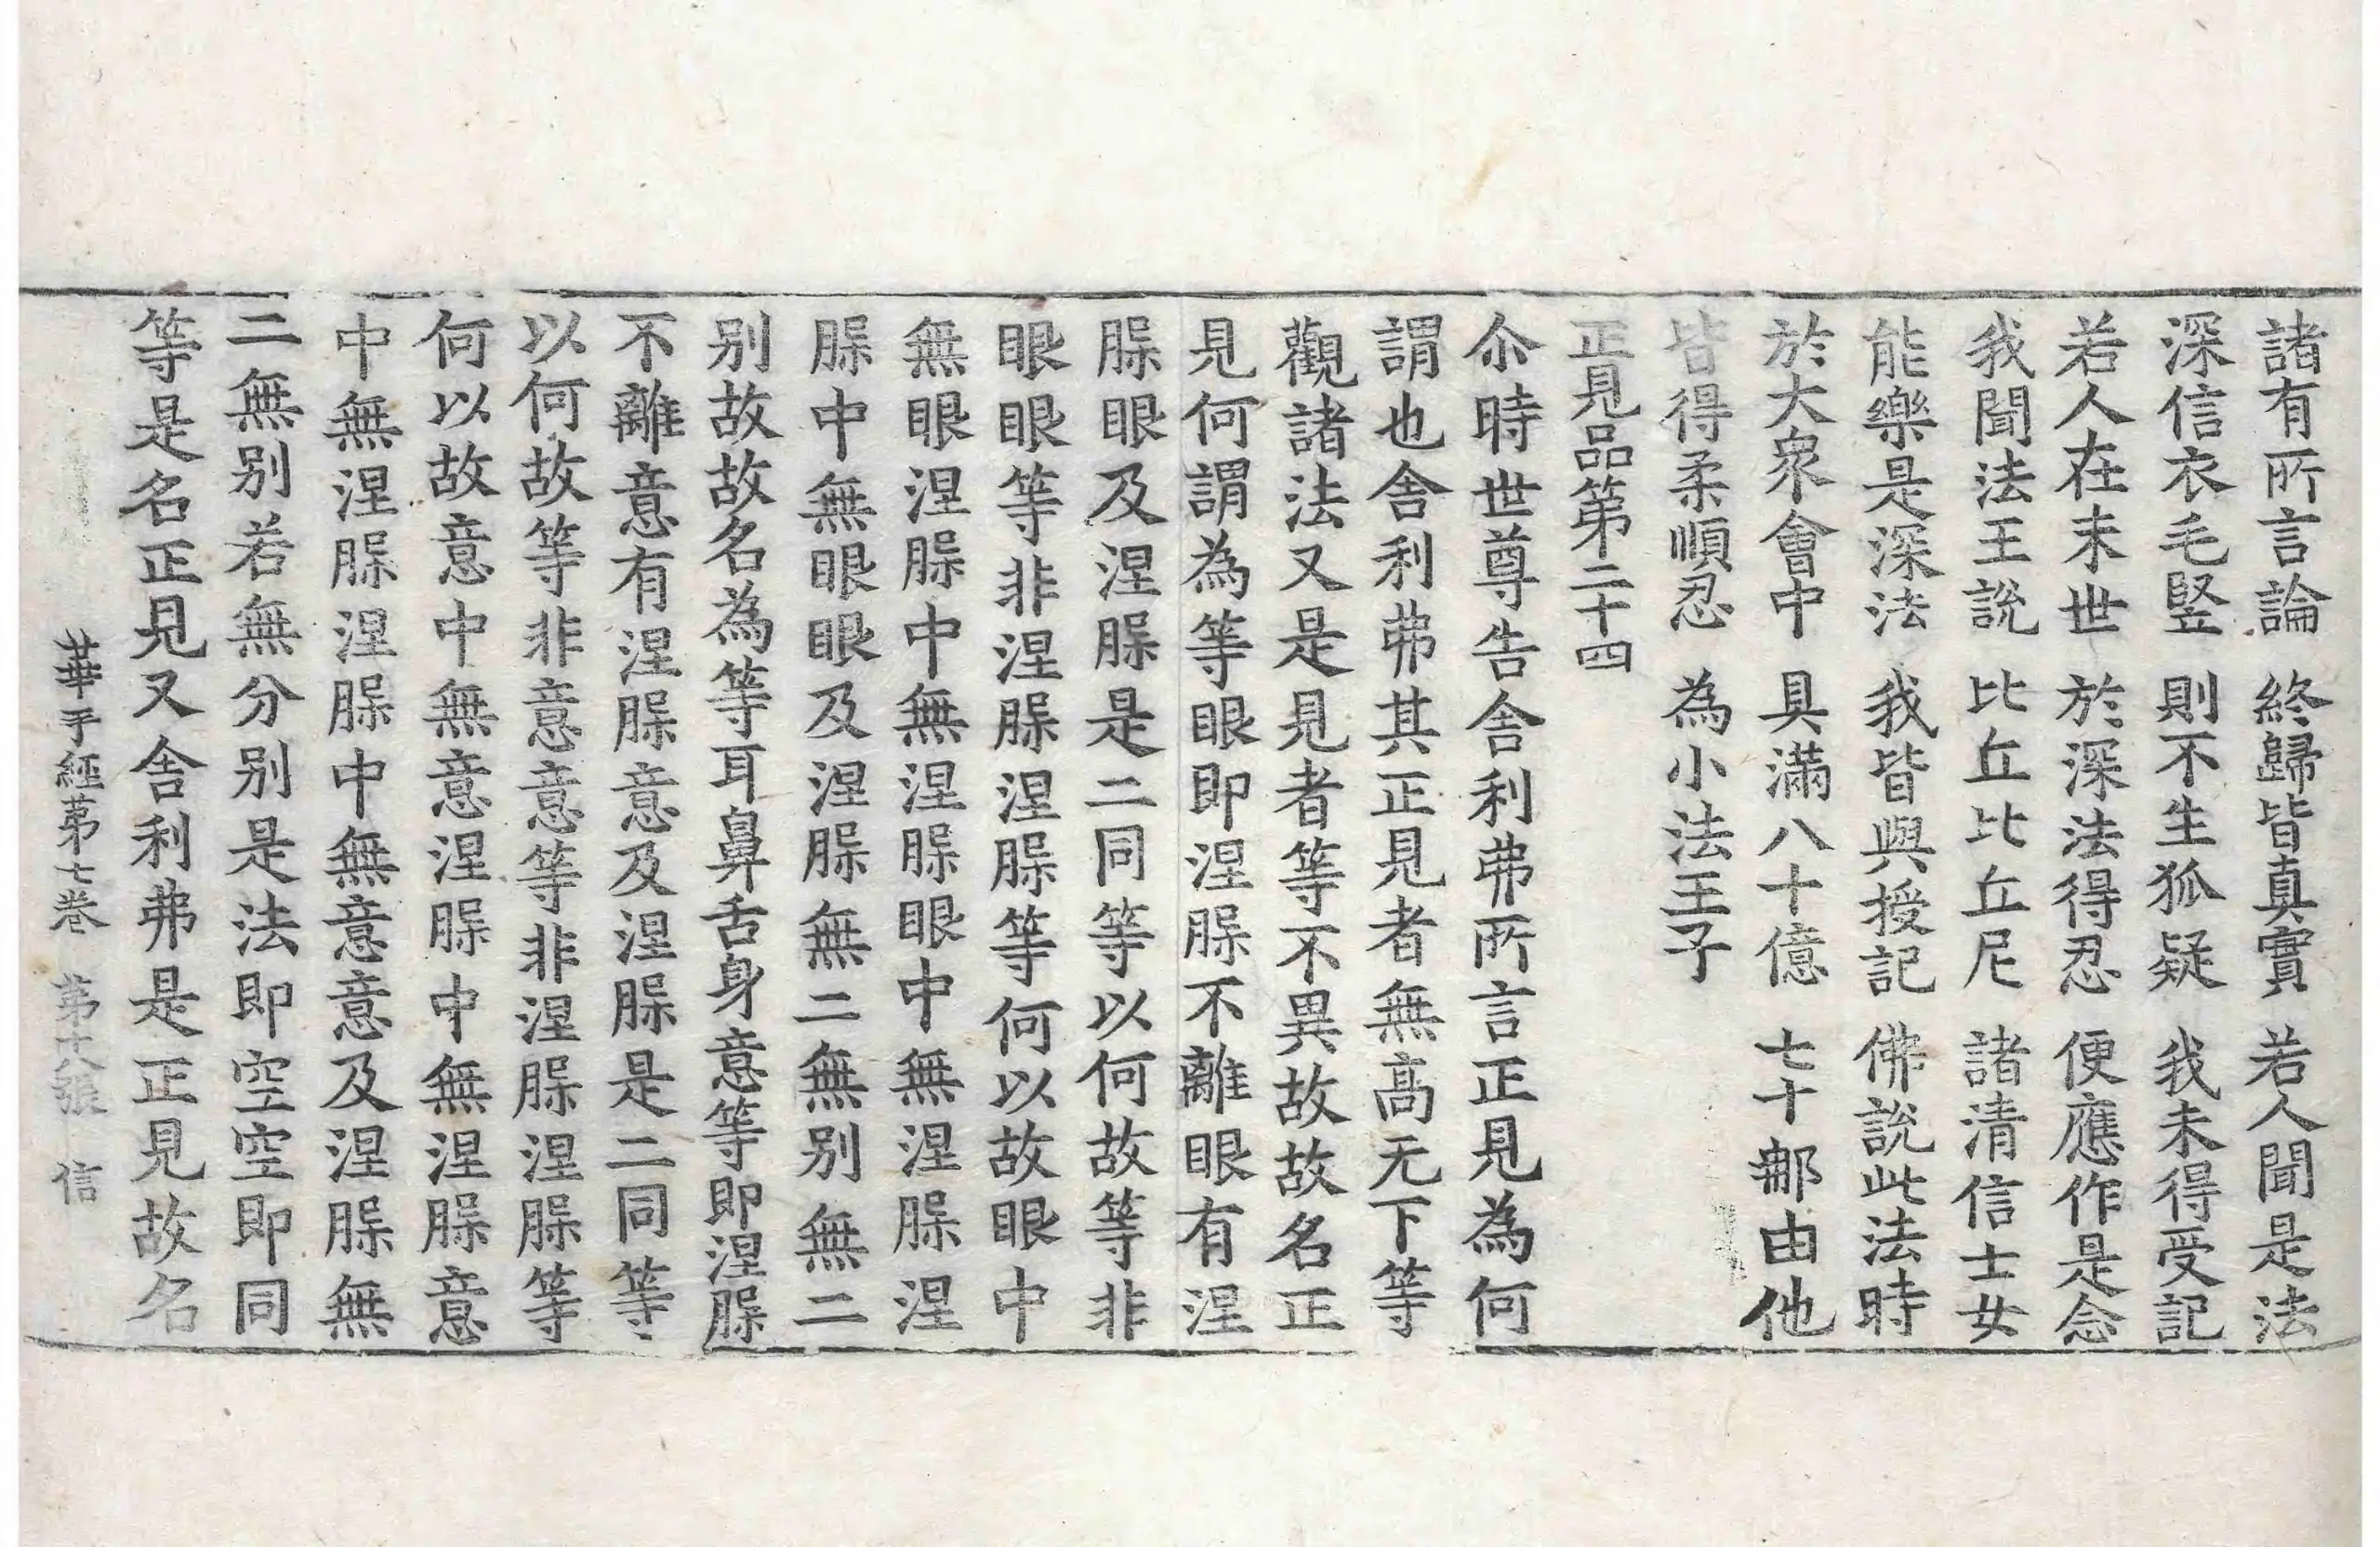 諸有所言論　終歸皆真實　若人聞是法
深信衣毛竪　則不生狐疑　我未得受記
若人在末世　於深法得忍　便應作是念
我聞法王說　比丘比丘尼　諸清信士女
能樂是深法　我皆與授記　佛說此法時
於大衆會中　具滿八十億　七十那由他
皆得柔順忍　為小法王子
正見品第二十四
尒時世尊告舍利弗所言正見為何
謂也舍利弗其正見者無高无下等
觀諸法又是見者等不異故故名正
見何謂為等眼即涅槃不離眼有涅
槃眼及涅槃是二同等以何故等非
眼眼等非涅槃涅槃等何以故眼中
無眼涅槃中無涅槃眼中無涅槃涅
槃中無眼眼及涅槃無二無別無二
別故故名為等耳鼻舌身意等即涅槃
不離意有涅槃意及涅槃是二同等
以何故等非意意等非涅槃涅槃等
何以故意中無意涅槃中無涅槃意
中無涅槃涅槃中無意意及涅槃無
二無別若無分別是法即空空即同
等是名正見又舍利弗是正見故名
華手經第七卷　第十八張　信